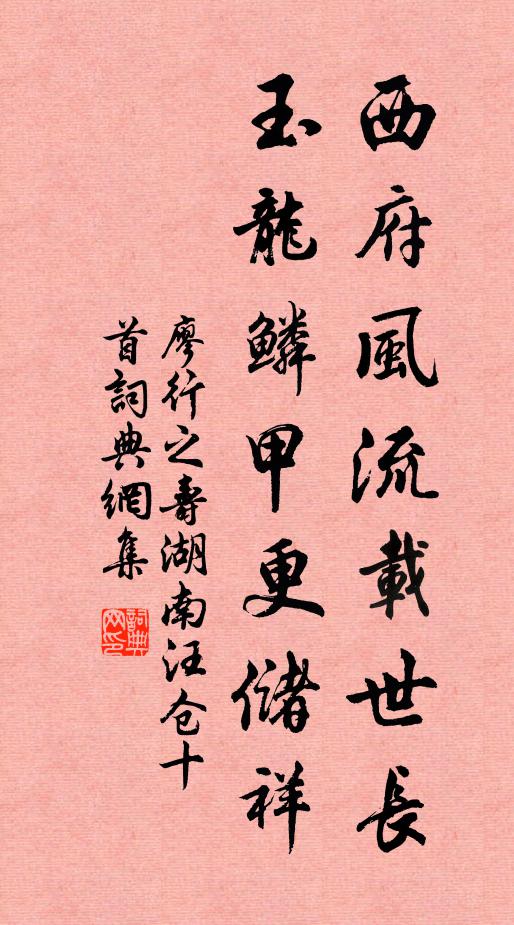 西府風流載世長
玉龍鱗甲更儲祥
廖行之壽湖南汪仓十
首詞典網集
詞典
网印